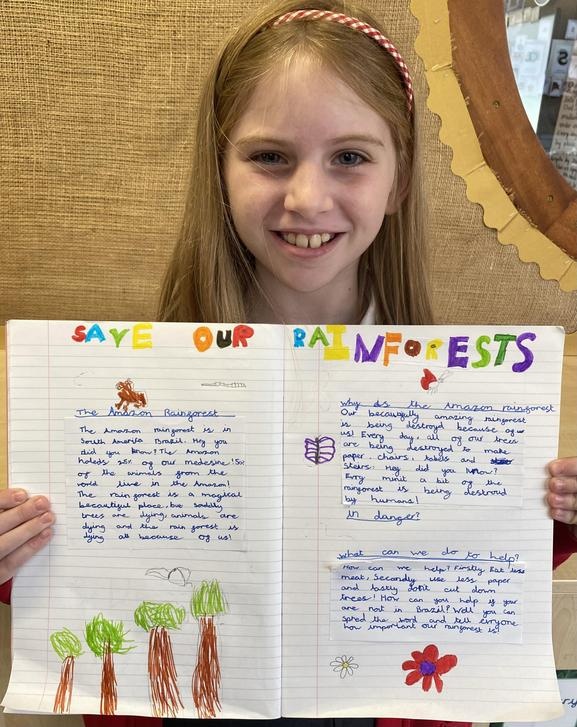 SAVE OUR RAINFORESTS
The Amazon Rainforest
The Amazon rainforest is in
South America Brazil. Hey you
did you know? The Amazon
holeds 25% of our medesine! 5%
of the animals from the
world live in the Amazon!
The rainforest is a magical
beautiful place, but sadly
trees are dying, animals are
dying and the rain forest is
dying all because of us!
why is the Amazon rainforest
Our beautifully amazing rainforest
is being destroyd because of
us! Every day, all of our trees
are being destroyed to make
paper, chairs, tabels and
Stairs. Hey did you know?
Evry minit a bit of the
rainforest is being destroud
by humans!
in danger?
what can we do to help?
How can we help? Firstly Eat less
meat, Secondly use less paper
and lastly don't cut down
trees! How can you help if your
are not in Brazil? Well you can
Spred the word and tell evryone
how important our rainforest is!